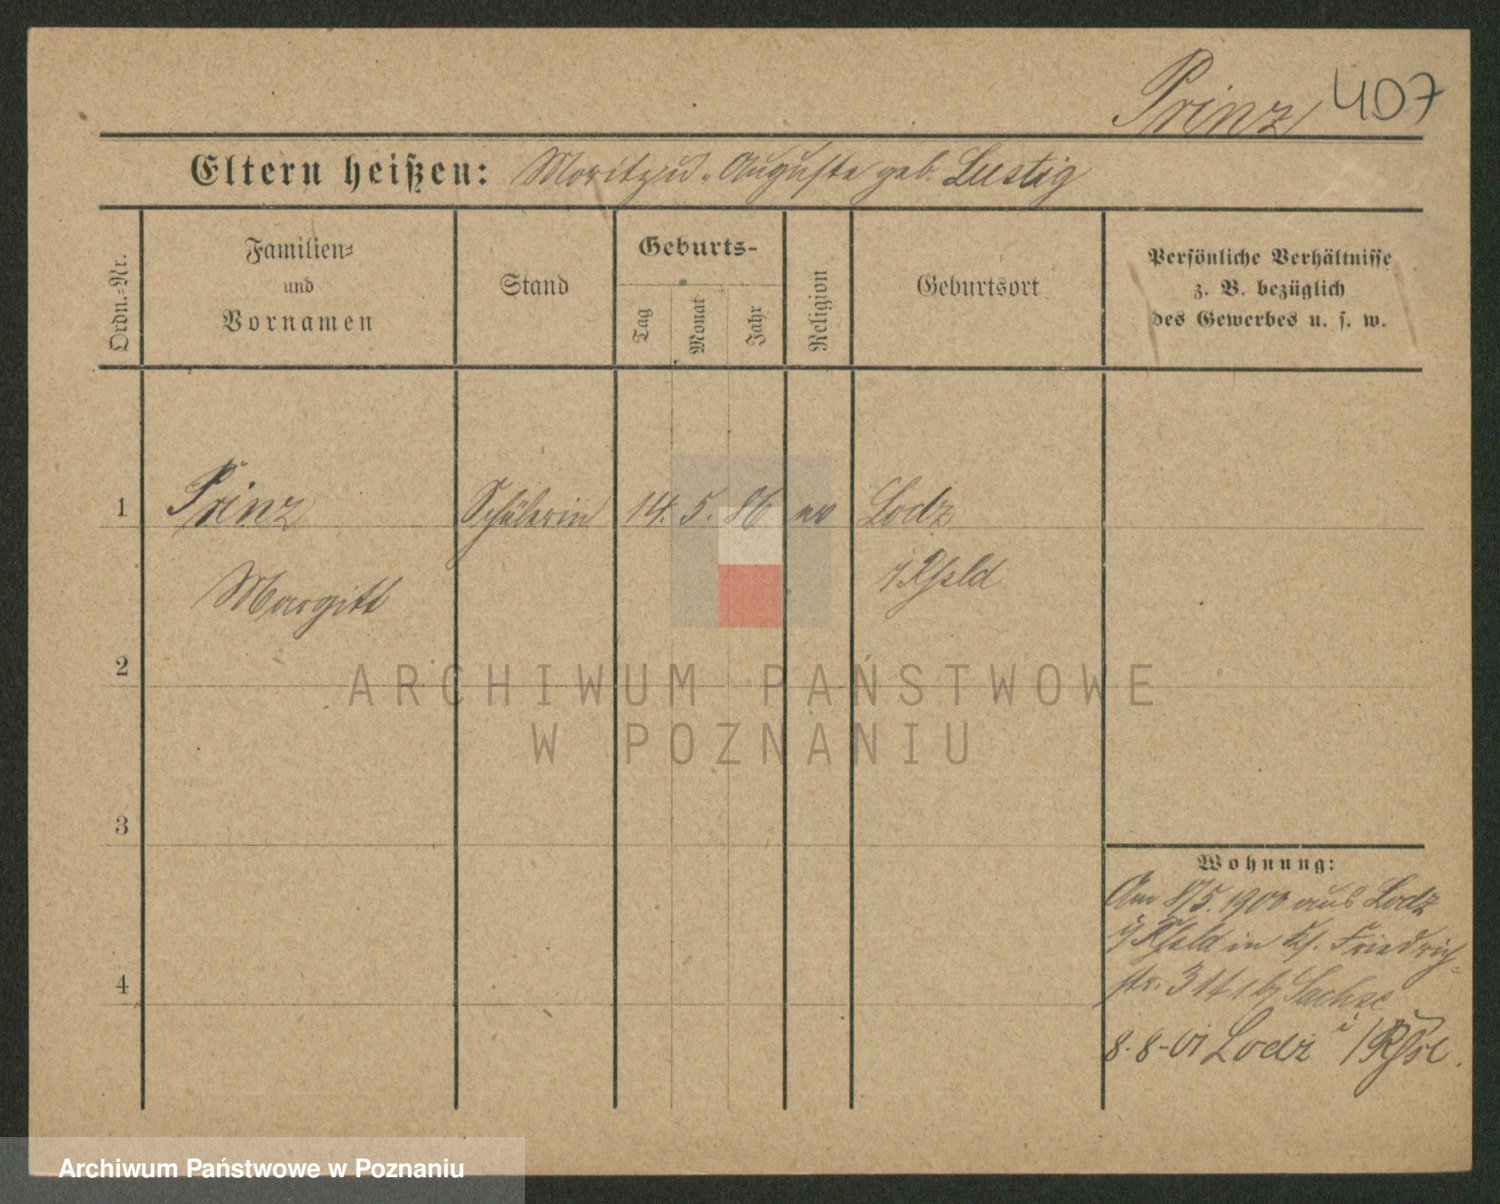 Prinz 407
Eltern heißen: Moritz u. Auguste geb. Lustig
Ordn.-Nr.
Familien-
und
Vornamen
Stand
Geburts-
Tag
Monat
Jahr
Religion
Geburtsort
Persönliche Verhältnisse
z. B. bezüglich
des Gewerbes u. s. w.
1 Prinz Schülerin 14. 5. 86 ev Lodz
Margitt
2
ARCHIWUM PAŃSTWOWE
W POZNANIU
3
Wohnung:
Am 8/5. 1900 aus Lodz
in Friedrich-
str. 31 Sachse
4
8-8-01 Lodz
Archiwum Państwowe w Poznaniu